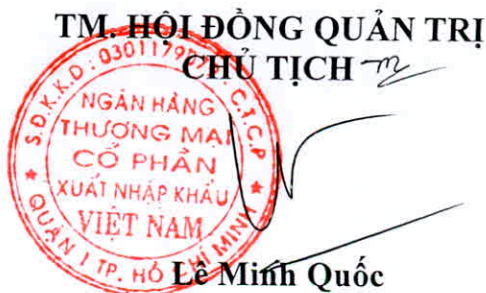 TM. HỘI ĐỒNG QUẢN TRỊ
CHỦ TỊCH
S.Đ.K.K.D: 0301179 - C.T.C.P
NGÂN HÀNG
THƯƠNG MẠI
CỔ PHẦN
XUẤT NHẬP KHẨU
VIỆT NAM
QUẬN 1 TP. HỒ CHÍ MINH
Lê Minh Quốc